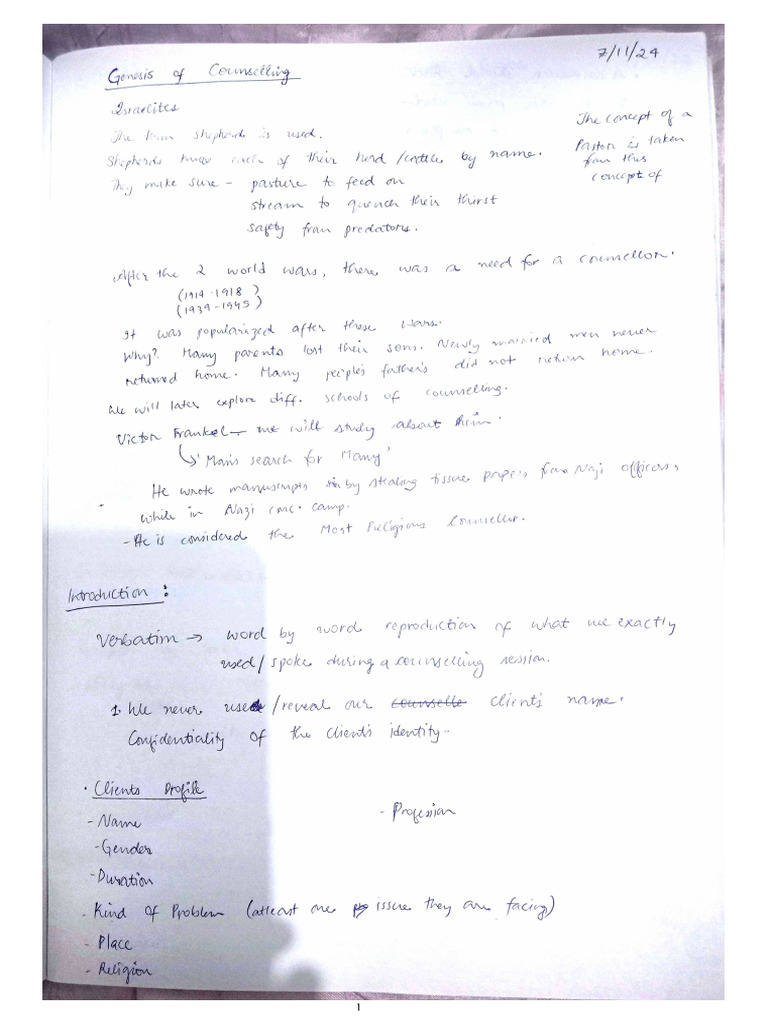 7/11/24
Genesis of Counselling
Israelites
The term shepherds is used.
Shepherds knew each of their herd /cattle by name.
They make sure - pasture to feed on
stream to quench their thirst
safety from predators.
The concept of a
Pastor is taken
from this
concept of
After the 2 world wars, there was a need for a counsellor.
(1914-1918)
(1939-1945)
It was popularized after these wars.
Why? Many parents lost their sons. Newly married men never
returned home. Many people's father's did not return home.
We will later explore diff. schools of counselling.
Victor Frankel - we will study about him.
'Man's search for Many'
He wrote manuscripts by stealing tissue papers from Nazi officers,
while in Nazi conc. camp.
- He is considered the Most Religious Counsellor.
Introduction :
Verbatim → word by word reproduction of what we exactly
used/spoke during a counselling session.
1. We never used/reveal our counselle client's name.
Confidentiality of the client's identity..
· Clients Profile
- Name
- Profession
- Gender
- Duration
- Kind of Problem (atleast one issue they are facing)
- Place
- Religion
1